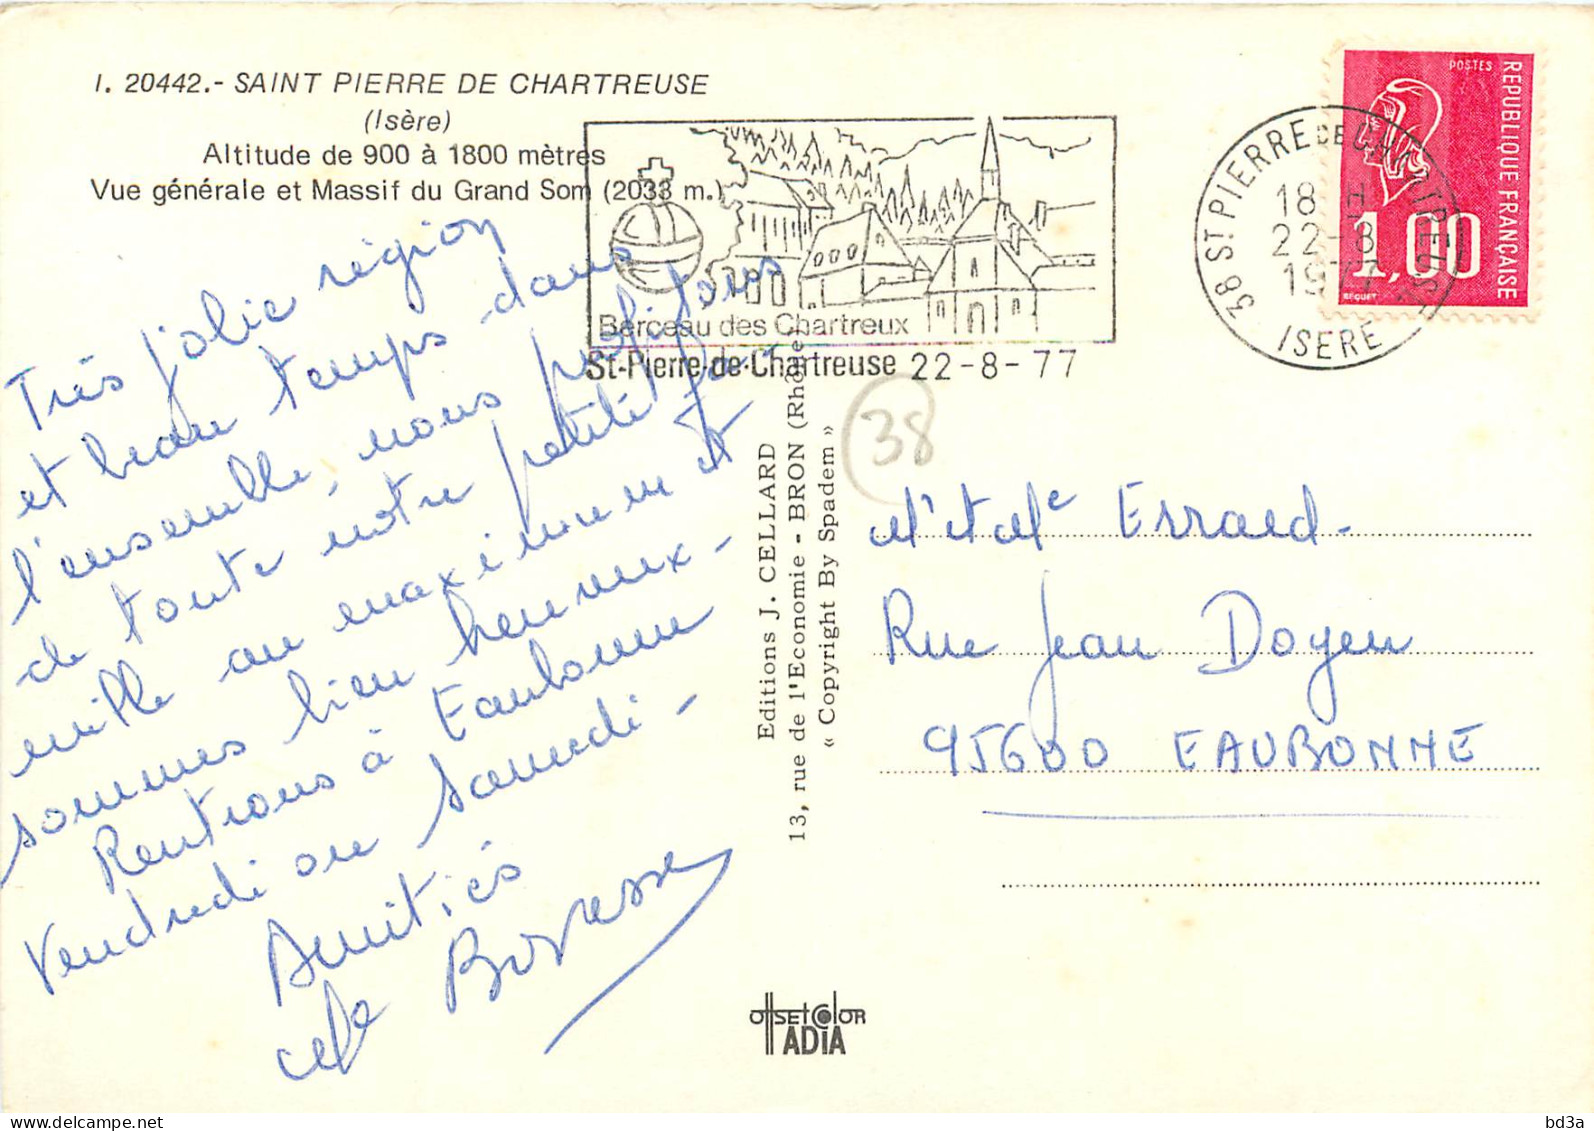 I. 20442.- SAINT PIERRE DE CHARTREUSE
(Isère)
Altitude de 900 à 1800 mètres
Vue générale et Massif du Grand Som (2033 m.)
Très jolie région
et beau temps dans
l'ensemble, nous profitons
de toute notre petite fa-
mille au maximum et
sommes bien heureux-
Rentrons à Eaubonne
Vendredi ou Samedi-
Amitiés
Berceau des Chartreux
St-Pierre-de-Chartreuse 22-8-77
38 ST PIERRE DE CHARTREUSE
18 H
22-8
1977
ISERE
POSTES
REPUBLIQUE FRANÇAISE
1,00
BEQUET
38
Editions J. CELLARD
13, rue de l'Economie - BRON (Rhône)
« Copyright By Spadem »
M. et Me Errard-
Rue Jean Doyen
95600 EAUBONNE
OffSET COLOR
ADIA
bd3a